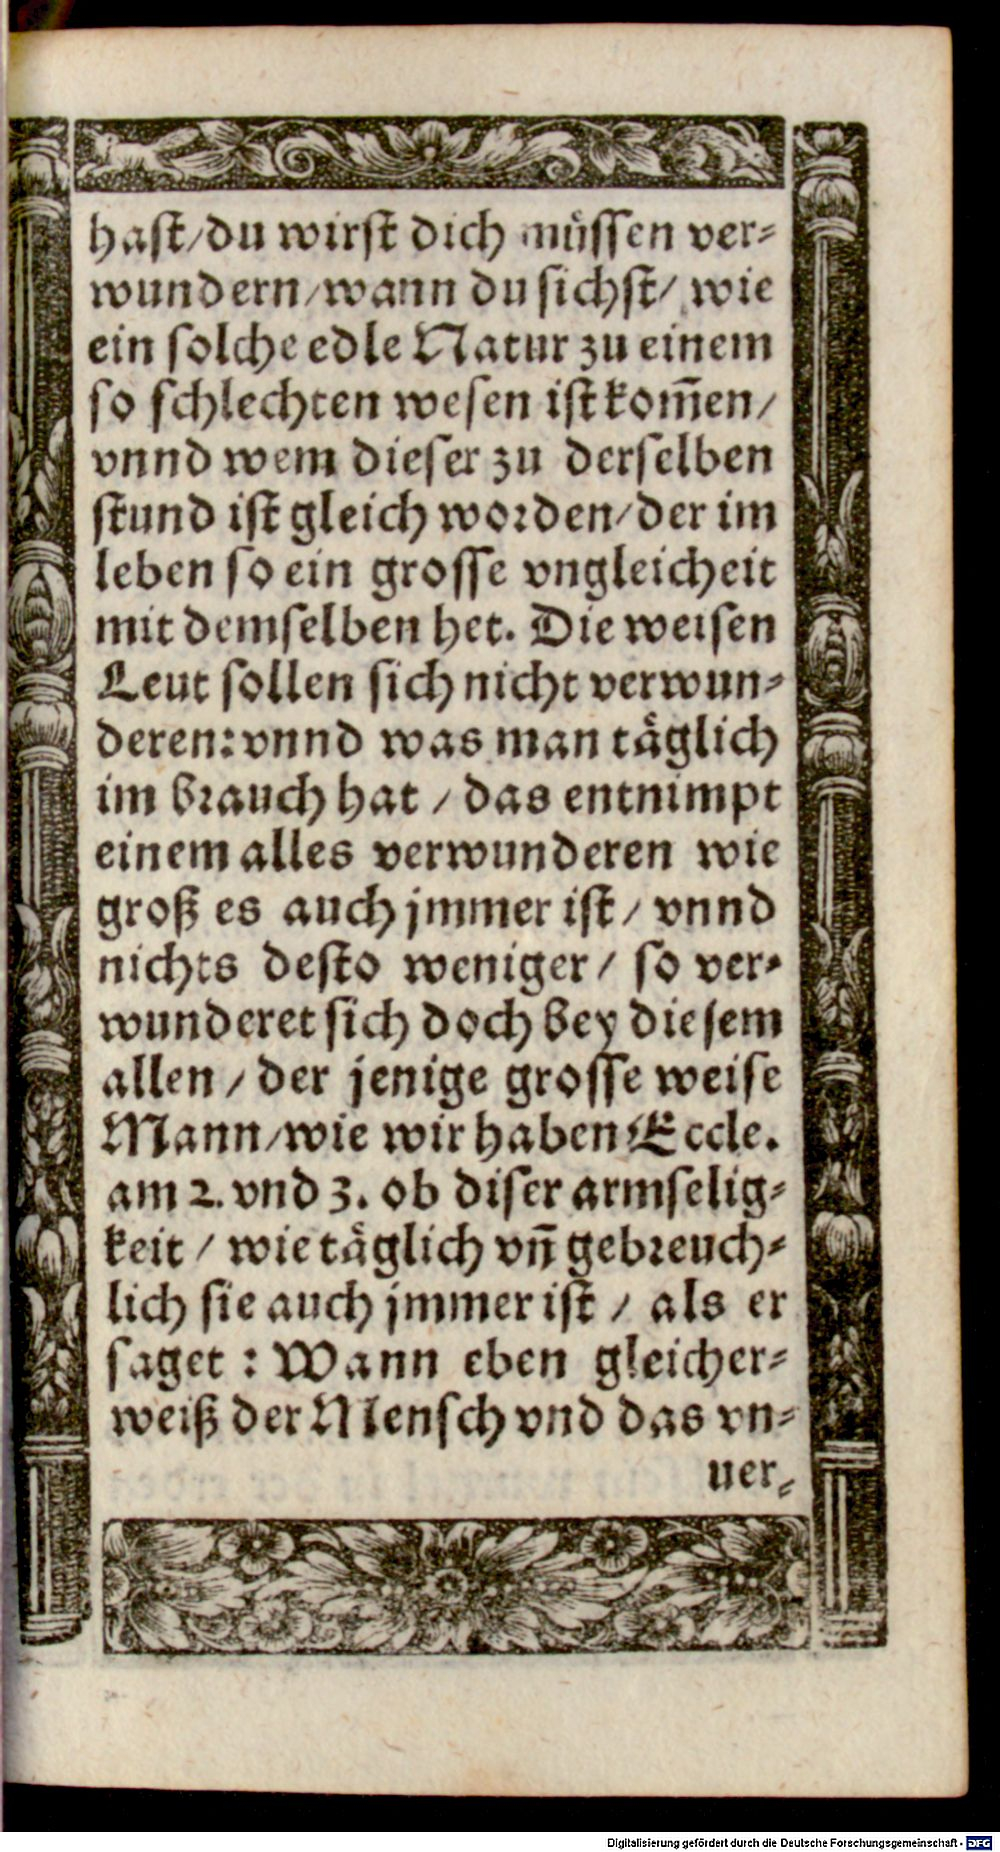 haſt/du wirſt dich müſſen ver-
wundern/wann du ſichſt/ wie
ein ſolche edle Natur zu einem
ſo ſchlechten weſen iſt kom̃en/
vnnd wem dieſer zu derſelben
ſtund iſt gleich worden/der im
leben ſo ein groſſe vngleicheit
mit demſelben het. Die weiſen
Leut ſollen ſich nicht verwun-
deren: vnnd was man täglich
im brauch hat / das entnimpt
einem alles verwunderen wie
groß es auch jmmer iſt / vnnd
nichts deſto weniger / ſo ver-
wunderet ſich doch bey dieſem
allen / der jenige groſſe weiſe
Mann/wie wir haben Eccle.
am 2. vnd 3. ob diſer armſelig-
keit / wie täglich vñ gebreuch-
lich ſie auch jmmer iſt / als er
ſaget : Wann eben gleicher-
weiß der Menſch vnd das vn-
uer-
Digitalisierung gefördert durch die Deutsche Forschungsgemeinschaft - DFG